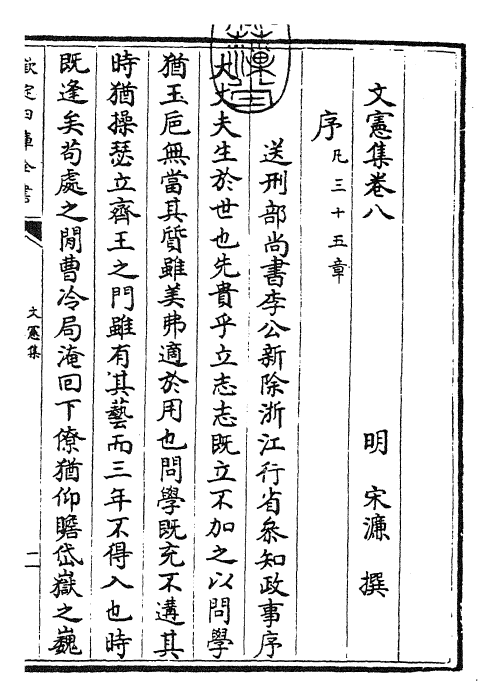 文憲集卷八
明 宋濂 撰
序凡三十五章
送刑部尚書李公新除浙江行省叅知政事序
大丈夫生於世也先貴乎立志志既立不加之以問學
猶玉巵無當其質雖美弗適於用也問學既充不遘其
時猶操瑟立齊王之門雖有其藝而三年不得入也時
既逢矣苟處之閒曹冷局淹回下僚猶仰瞻岱嶽之巍
欽定四庫全書
文憲集